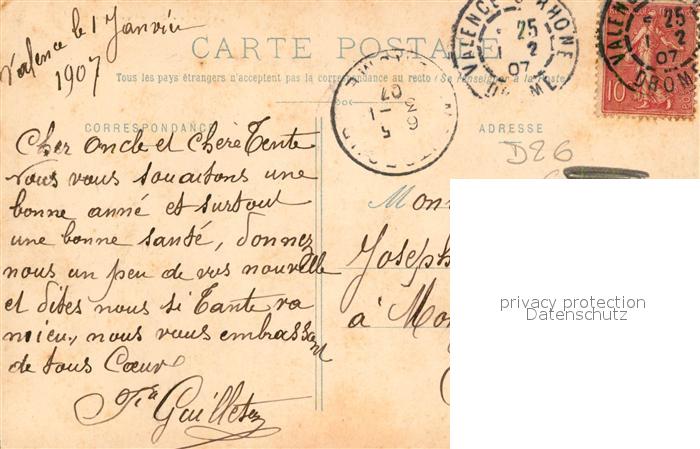 Valence le 1 Janvier
1907
CARTE POSTALE
Tous les pays étrangers n'acceptent pas la correspondance au recto (Se renseigner à la Poste)
CORRESPONDANCE
ADRESSE
Cher oncle et chère Tente
Nous vous souaitons une
bonne anné et surtout
une bonne santé, donnez
nous un peu de vos nouvelle
et dites nous si Tante va
mieu, nous vous embrassent
de tous Cœur
D26
M Mon
Joseph
à Mon
VALENCE S RHONE
25
1 2
07
DROME
5 1
07
VALENCE
25
2
07
DROME
10
privacy protection
Datenschutz